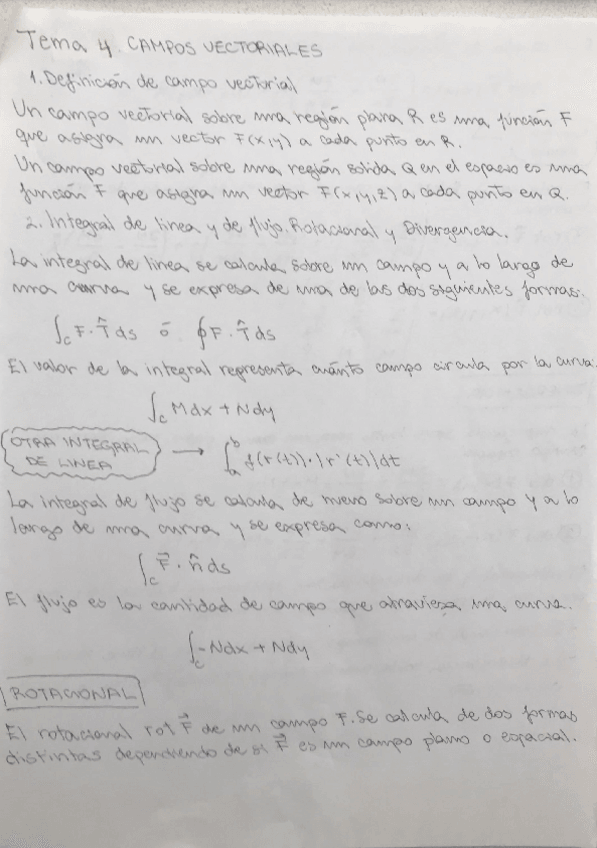 Tema 4. CAMPOS VECTORIALES
1. Definición de campo vectorial
Un campo vectorial sobre una región plana R es una función F
que asigna un vector F(x,y) a cada punto en R.
Un campo vectorial sobre una región solida Q en el espacio es una
función F que asigna un vector F(x,y,z) a cada punto en Q.
2. Integral de linea y de flujo. Rotacional y Divergencia.
La integral de linea se calcula sobre un campo y a lo largo de
una curva y se expresa de una de las dos siguientes formas:
∫_C F · T̂ ds ó ∮ F · T̂ ds
El valor de la integral representa cuánto campo circula por la curva:
∫_C Mdx + Ndy
OTRA INTEGRAL
DE LINEA → ∫_a^b f(r(t)) · |r'(t)| dt
La integral de flujo se calcula de nuevo sobre un campo y a lo
largo de una curva y se expresa como:
∫_C F⃗ · n̂ ds
El flujo es la cantidad de campo que atraviesa una curva.
∫_C -Ndx + Ndy
ROTACIONAL
El rotacional rot F⃗ de un campo F. Se calcula de dos formas
distintas dependiendo de si F⃗ es un campo plano o espacial.